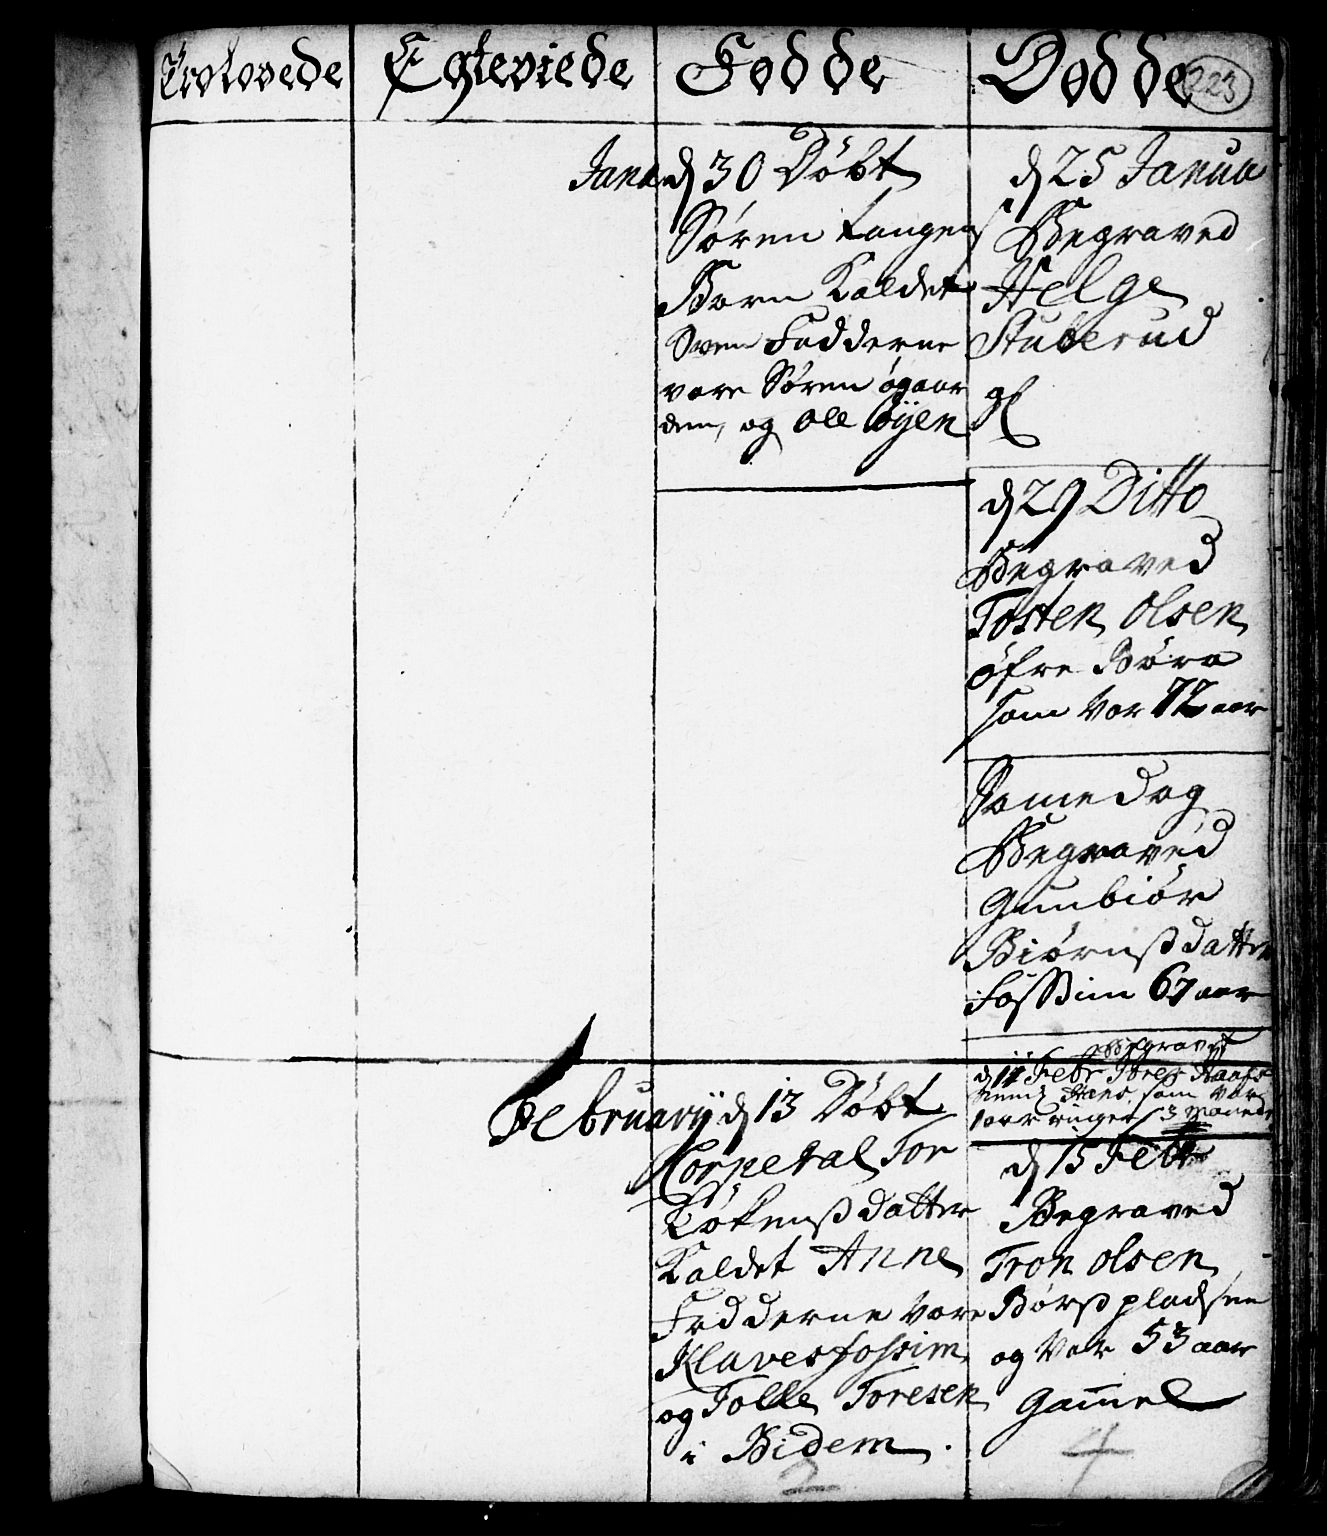 Trolovede Egteviede Fødde Dødde 223
Janu d 30 Døbt
Søren tangens
Barn Kaldet
Sven Fadderne
vare Søren øgaar
den, og Ole øyen
d 25 Janua
Begraved
Helge
Stuberud
d 29 Ditto
Begraved
Tosten Olsen
øfre Børa
som Var 72 aar
Same dag
Begraved
Gunbiør
Biørnsdatter
Fossim 67 aar
Begravet
d 11 Febr
som Var
1 aar ringer 3 Maaneder
Februarij d 13 Døbt
Corperal Tor
Løkens datter
Kaldet Anne
Fadderne Vare
Klaves fossim
og Tolle Toresen
i Bidem.
2
d 15 Febr
Begraved
Tron olsen
Børs pladsen
og Var 53 aar
Gamel
4